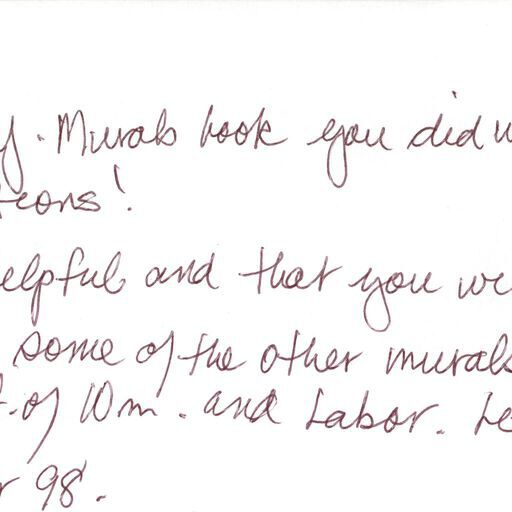 y. Murals book you did w
teons!
elpful and that you we
some of the other murals
t. of Wom. and Labor. Le
r 98.